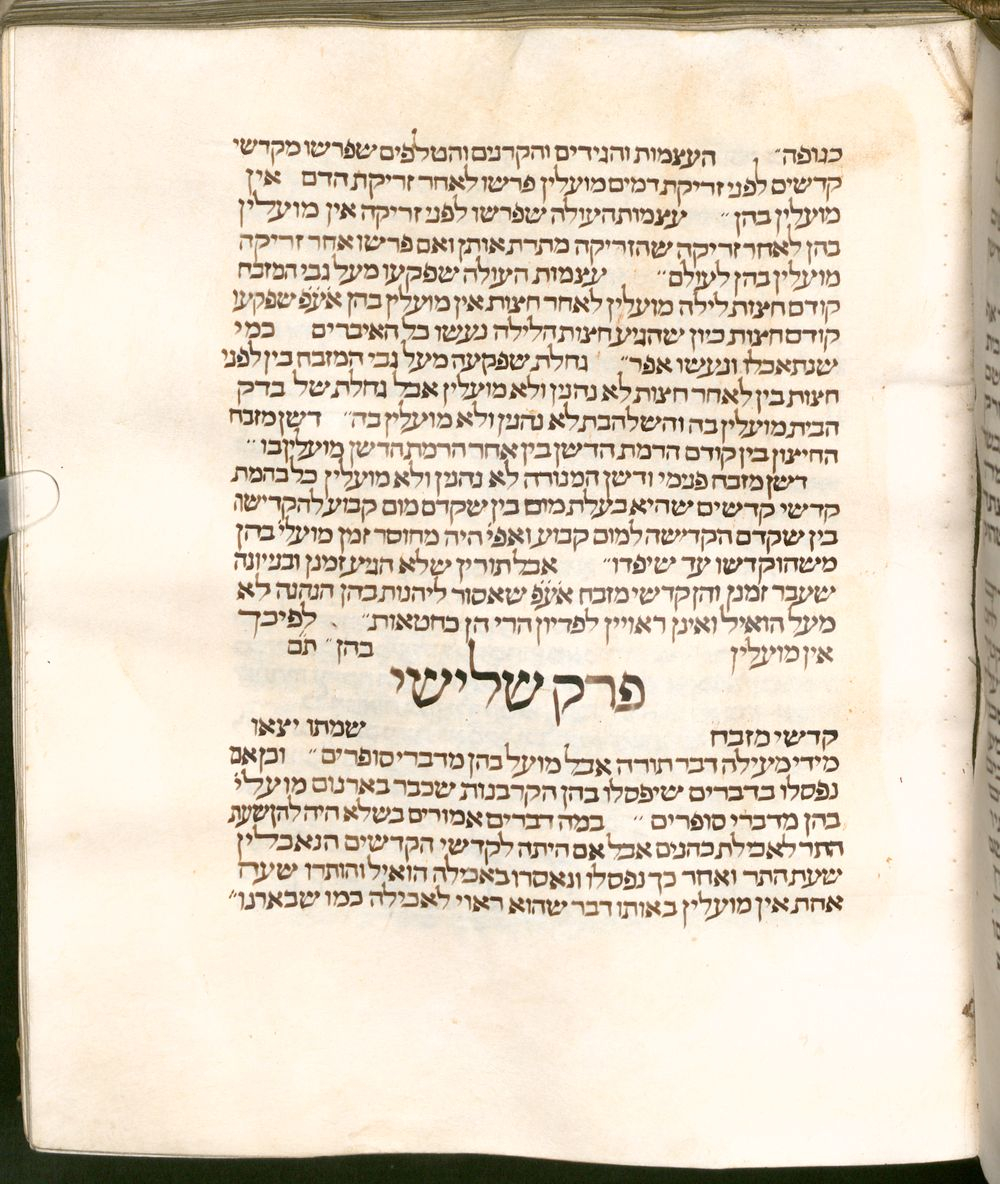 כגופה״ העצמות והגידים והקרנים והטלפים שפרשו מקדשי
קדשים לפני זריקת דמים מועלין פרשו לאחר זריקת הדם אין
מועלין בהן״ עצמות העולה שפרשו לפני זריקה אין מועלין
בהן לאחר זריקה שהזריקה מתרת אותן ואם פרשו אחר זריקה
מועלין בהן לעולם״ עצמות העולה שפקעו מעל גבי המזבח
קודם חצות לילה מועלין לאחר חצות אין מועלין בהן אע״פ שפקעו
קודם חצות כיון שהגיע חצות הלילה נעשו כל האיברים כמי
שנתאכלו ונעשו אפר״ גחלת שפקעה מעל גבי המזבח בין לפני
חצות בין לאחר חצות לא נהנין ולא מועלין אבל גחלת של בדק
הבית מועלין בה והשלהבת לא נהנין ולא מועלין בה״ דשן מזבח
החיצון בין קודם הרמת הדשן בין אחר הרמת הדשן מועלין בו״
דשן מזבח פנימי ודשן המנורה לא נהנין ולא מועלין כל בהמת
קדשי קדשים שהיא בעלת מום בין שקדם מום קבוע להקדישה
בין שקדם הקדישה למום קבוע ואפי׳ היה מחוסר זמן מועלי׳ בהן
משהוקדשו עד שיפדו״ אבל תורין שלא הגיע זמנן ובני יונה
שעבר זמנן והן קדשי מזבח אע״פ שאסור ליהנות בהן הנהנה לא
מעל הואיל ואינן ראויין לפדיון הרי הן כחטאות״ לפיכך
אין מועלין בהן״ תם
פרק שלישי
קדשי מזבח שמתו יצאו
מידי מעילה דבר תורה אבל מועל בהן מדברי סופרים״ וכן אם
נפסלו בדברים שיפסלו בהן הקרבנות שכבר בארנום מועלי׳
בהן מדברי סופרים״ במה דברים אמורים בשלא היה להן שעת
התר לאכילת כהנים אבל אם היתה לקדשי הקדשים הנאכלין
שעת התר ואחר כך נפסלו ונאסרו באכילה הואיל והותרו שעה
אחת אין מועלין באותו דבר שהוא ראוי לאכילה כמו שבארנו״